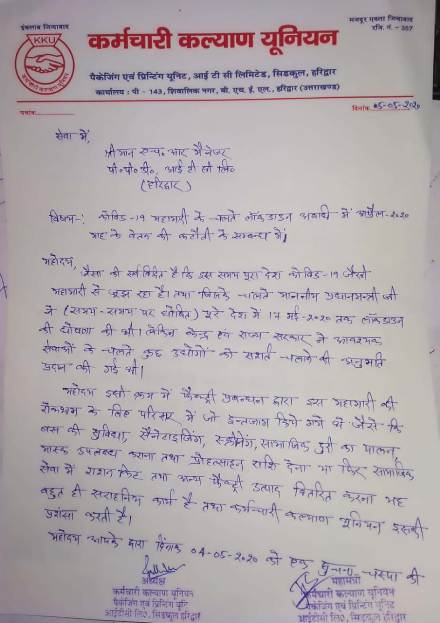 इंकलाब जिन्दाबाद
मजदूर एकता जिन्दाबाद
रजि. नं. - 357
KKU
कर्मचारी कल्याण यूनियन
पैकेजिंग एवं प्रिन्टिंग यूनिट, आई टी सी लिमिटेड, सिडकुल, हरिद्वार
कार्यालय : पी - 143, शिवालिक नगर, बी. एच. ई. एल., हरिद्वार (उत्तराखण्ड)
पत्रांक
दिनांक 05-05-2020
सेवा में,
श्रीमान एच० आर मैनेजर
पी०पी०डी०, आई टी सी लि०
(हरिद्वार)
विषय-: कोविड-19 महामारी के चलते लॉकडाउन अवधि में अप्रैल-2020
माह के वेतन की कटौती के सम्बन्ध में,
महोदय,
जैसा की सर्व विदित है कि इस समय पूरा देश कोविड-19 जैसी
महामारी से जूझ रहा है। तथा जिसके चलते माननीय प्रधानमन्त्री जी
ने (समय-समय पर घोषित) पूरे देश में 17 मई-2020 तक लॉकडाउन
की घोषणा की थी। लेकिन केन्द्र एवं राज्य सरकार ने आवश्यक
सेवाओं के चलते कुछ उद्योगों को सशर्त चलाने की अनुमति
प्रदान की गई थी।
महोदय इसी क्रम में फैक्ट्री प्रबन्धन द्वारा इस महामारी की
रोकथाम के लिए परिसर में जो इन्तजाम किये गये थे जैसे कि
बस की सुविधा, सैनेटाइजिंग, स्क्रीनिंग, सामाजिक दूरी का पालन,
मास्क उपलब्ध कराना तथा प्रोहत्साहन राशि देना या फिर सामाजिक
सेवा में राशन किट तथा अन्य फैक्ट्री उत्पाद वितरित करना यह
बहुत ही सराहनिय कार्य है तथा कर्मचारी कल्याण यूनियन इसकी
प्रशंसा करती है।
महोदय आपके द्वारा दिनांक 04-05-2020 को एक सूचना चस्पा की
अध्यक्ष
कर्मचारी कल्याण यूनियन
पैकेजिंग एवं प्रिन्टिंग यूनिट
आईटीसी लि०, सिडकुल हरिद्वार
महामंत्री
कर्मचारी कल्याण यूनियन
पैकेजिंग एवं प्रिन्टिंग यूनिट
आईटीसी लि०, सिडकुल हरिद्वार